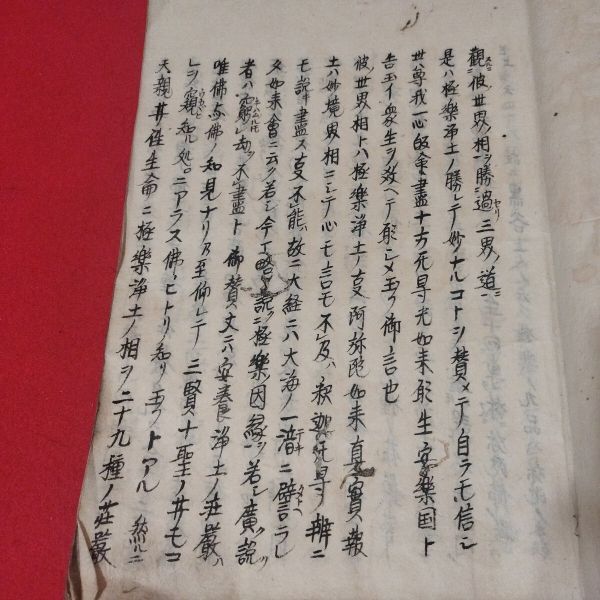 観彼世界ノ相ヲ勝過三界ノ道ニ
是ハ極楽浄土ノ勝レテ妙ナルコトヲ賛メテノ自ラモ信シ
世尊我一心帰命盡十方无㝵光如来願生安楽国ト
告玉イ衆生ヲ教ヘテ願シメ玉フ御言也
彼世界相トハ極楽浄土ノ叓阿弥陀如来真實ノ報
土ハ妙境界相ニシテ心モ言モ不及ハ釈迦无㝵ノ辨ニ
モ説キ盡ス叓不能故ニ大経ニハ大海ノ一渧ニ譬ラレ
又如来會ニ云ク若シ今丁略説ニ極楽因縁ヲ若シ廣ク説ハ
者ハ窮レ劫ヲ不盡ト御賛文ニハ安養浄土ノ荘嚴ハ
唯佛与佛ノ知見ナリ乃至仰レテ三賢十聖ノ井モコ
レヲ窺知ル処ニアラス佛ヒトリ知リ玉フトアル 然ルニ
天親井往生論ニ極楽浄土ノ相ヲ二十九種ノ荘嚴